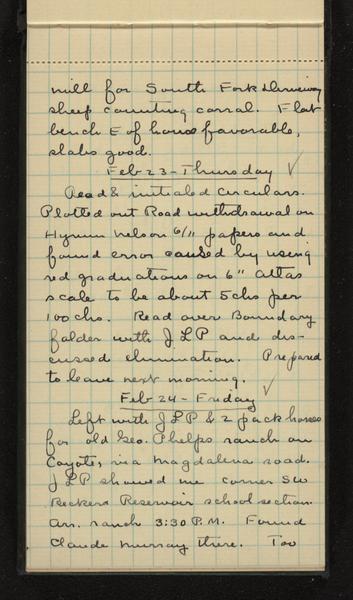 mill for South Fork Driveway
sheep counting corral. Flat
bench E of house favorable,
slabs good.
Feb 23 - Thursday ✓
Read & initialed circulars.
Plotted out Road withdrawal on
Hyrum Nelson 6/11 papers and
found error caused by using
red graduations on 6" Atlas
scale to be about 5 chs per
100 chs. Read over Boundary
folder with J L P and dis-
cussed elimination. Prepared
to leave next morning.
Feb 24 - Friday ✓
Left with J L P & 2 pack horses
for old Geo. Phelps ranch on
Coyote, via Magdalena road.
J L P showed me corner SW
Beckers Reservoir school section.
Arr. ranch 3:30 P.M. Found
Claude Murray there. Too